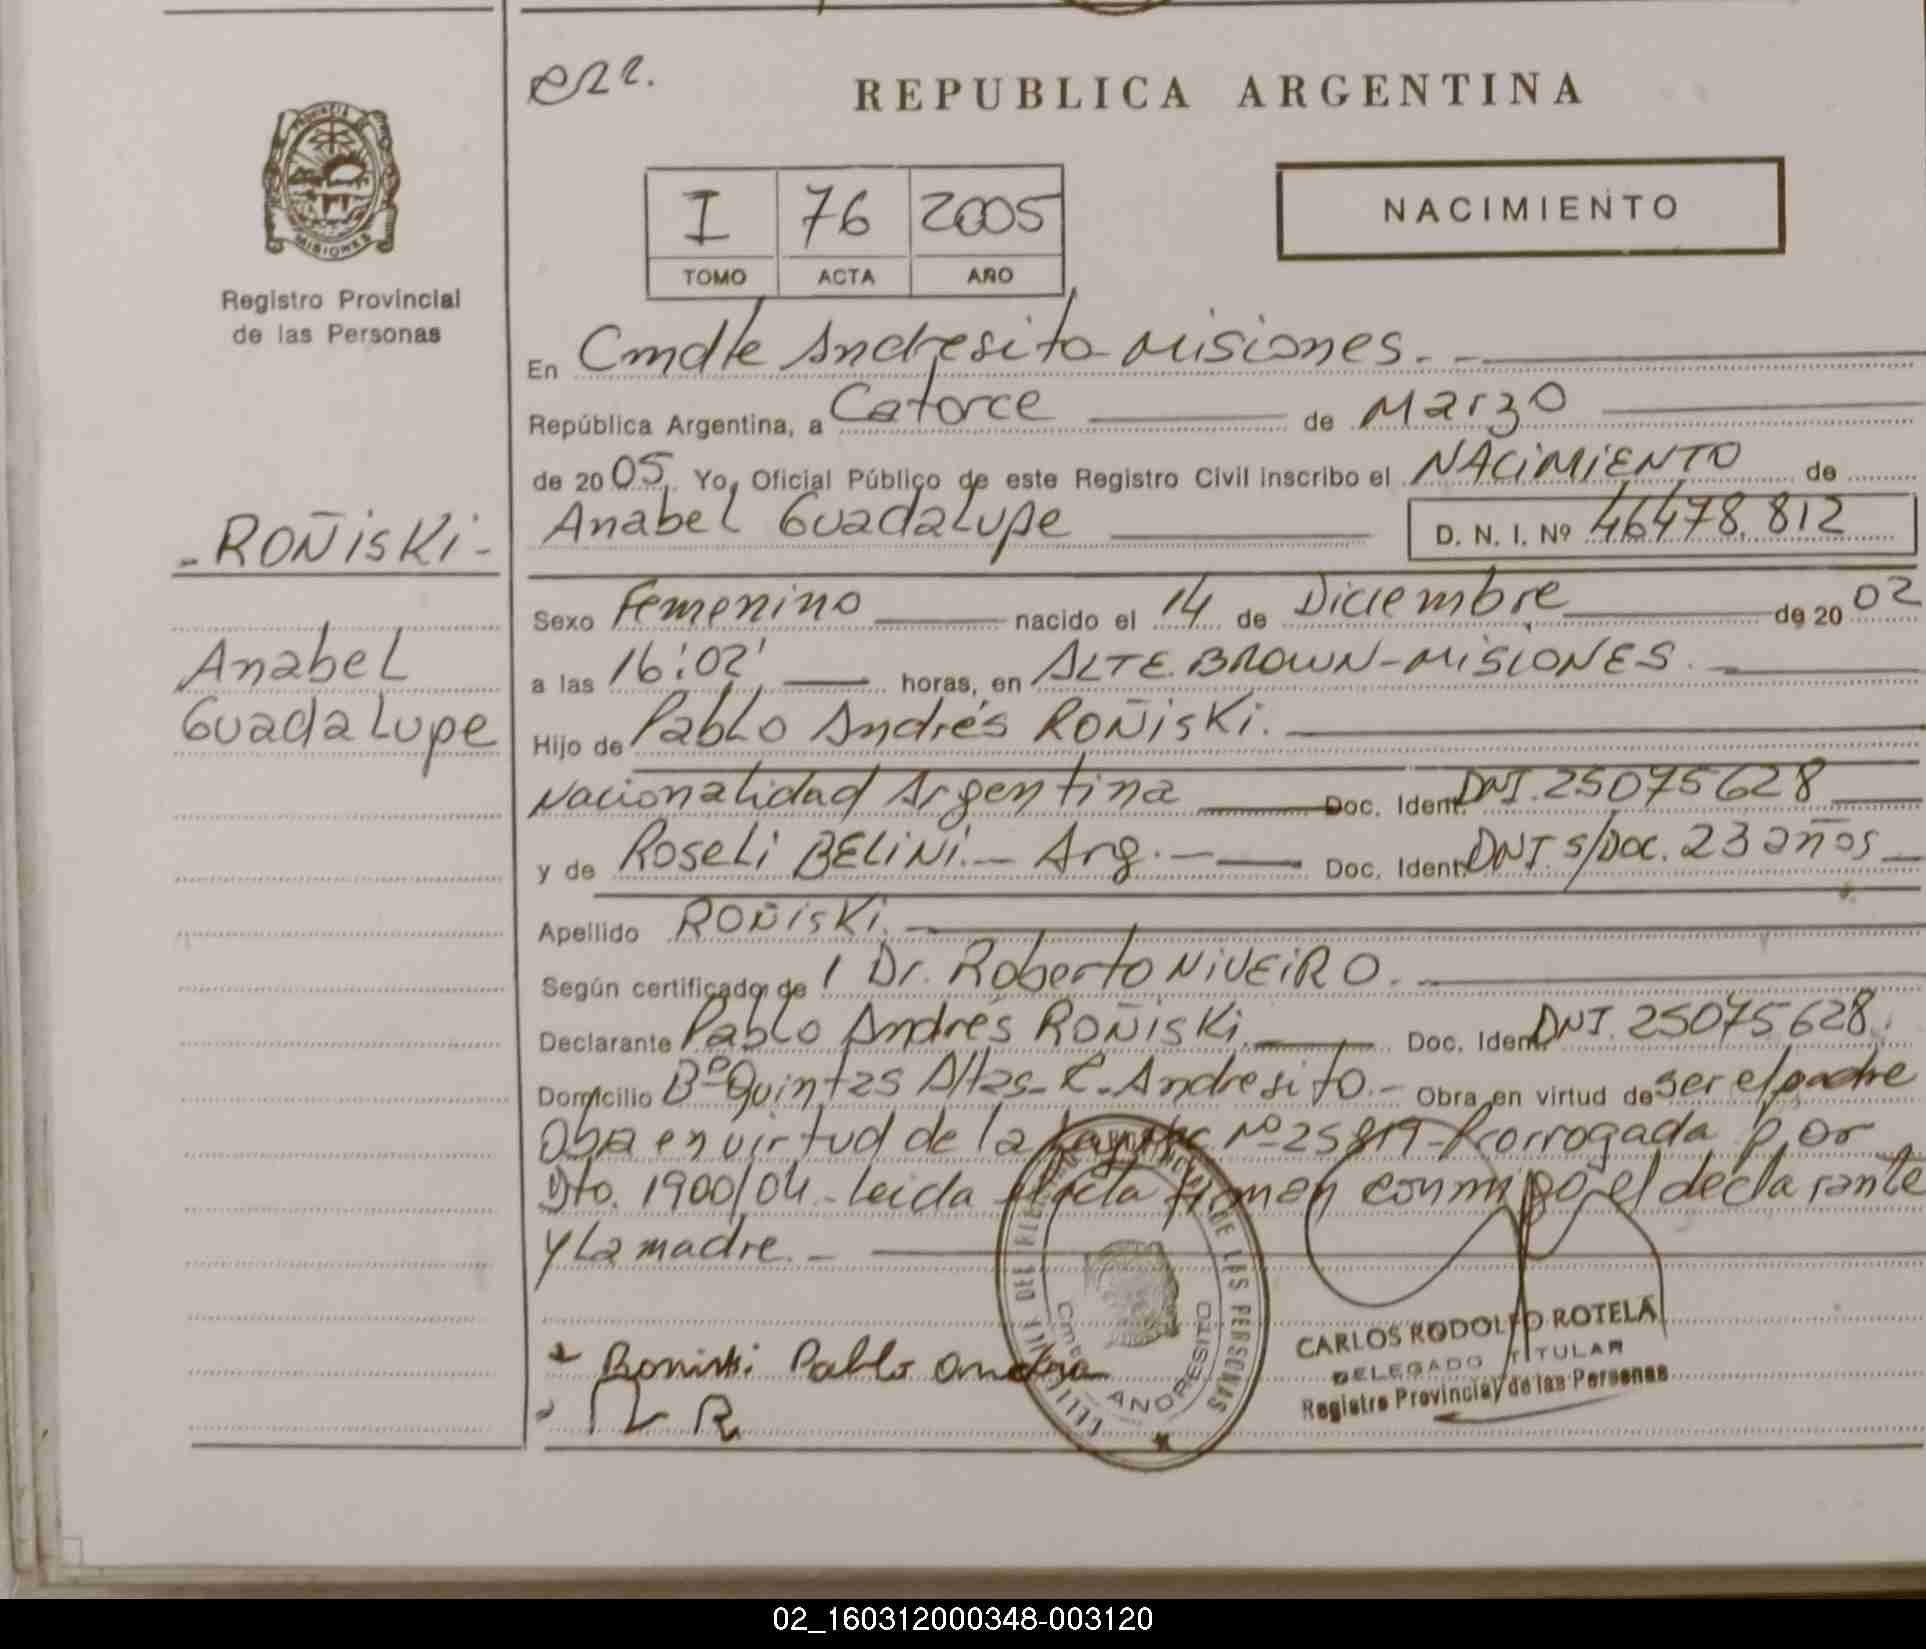 REPUBLICA ARGENTINA
PROVINCIA DE
MISIONES
Registro Provincial
de las Personas
I 76 2005
TOMO ACTA AÑO
NACIMIENTO
En Cmdte Andresito Misiones.-
República Argentina, a Catorce de Marzo
de 2005. Yo, Oficial Público de este Registro Civil inscribo el NACIMIENTO de
-ROÑisKi-
Anabel Guadalupe D. N. I. Nº 46478.812
Sexo Femenino nacido el 14 de Diciembre de 2002
Anabel
Guadalupe
a las 16:02' horas, en ALTE. BROWN-MISIONES.
Hijo de Pablo Andrés ROÑisKi.
Nacionalidad Argentina Doc. Ident. DNI. 25075628
y de Roseli BELINI.- Arg.- Doc. Ident. DNI. s/Doc. 23 años
Apellido ROÑisKi.
Según certificado de Dr. Roberto NIVEIRO.
Declarante Pablo Andrés ROÑisKi. Doc. Ident. DNI. 25075628.
Domicilio Bº Quintas Altas- C. Andresito.- Obra en virtud de ser el padre
Obra en virtud de la Nº 25819-Prorrogada por
Dto. 1900/04.- Leida el acta firman conmigo el declarante
y la madre.-
Pablo
DE LAS PERSONAS
ANDRESITO
CARLOS RODOLFO ROTELA
DELEGADO TITULAR
Registro Provincial de las Personas
02_160312000348-003120